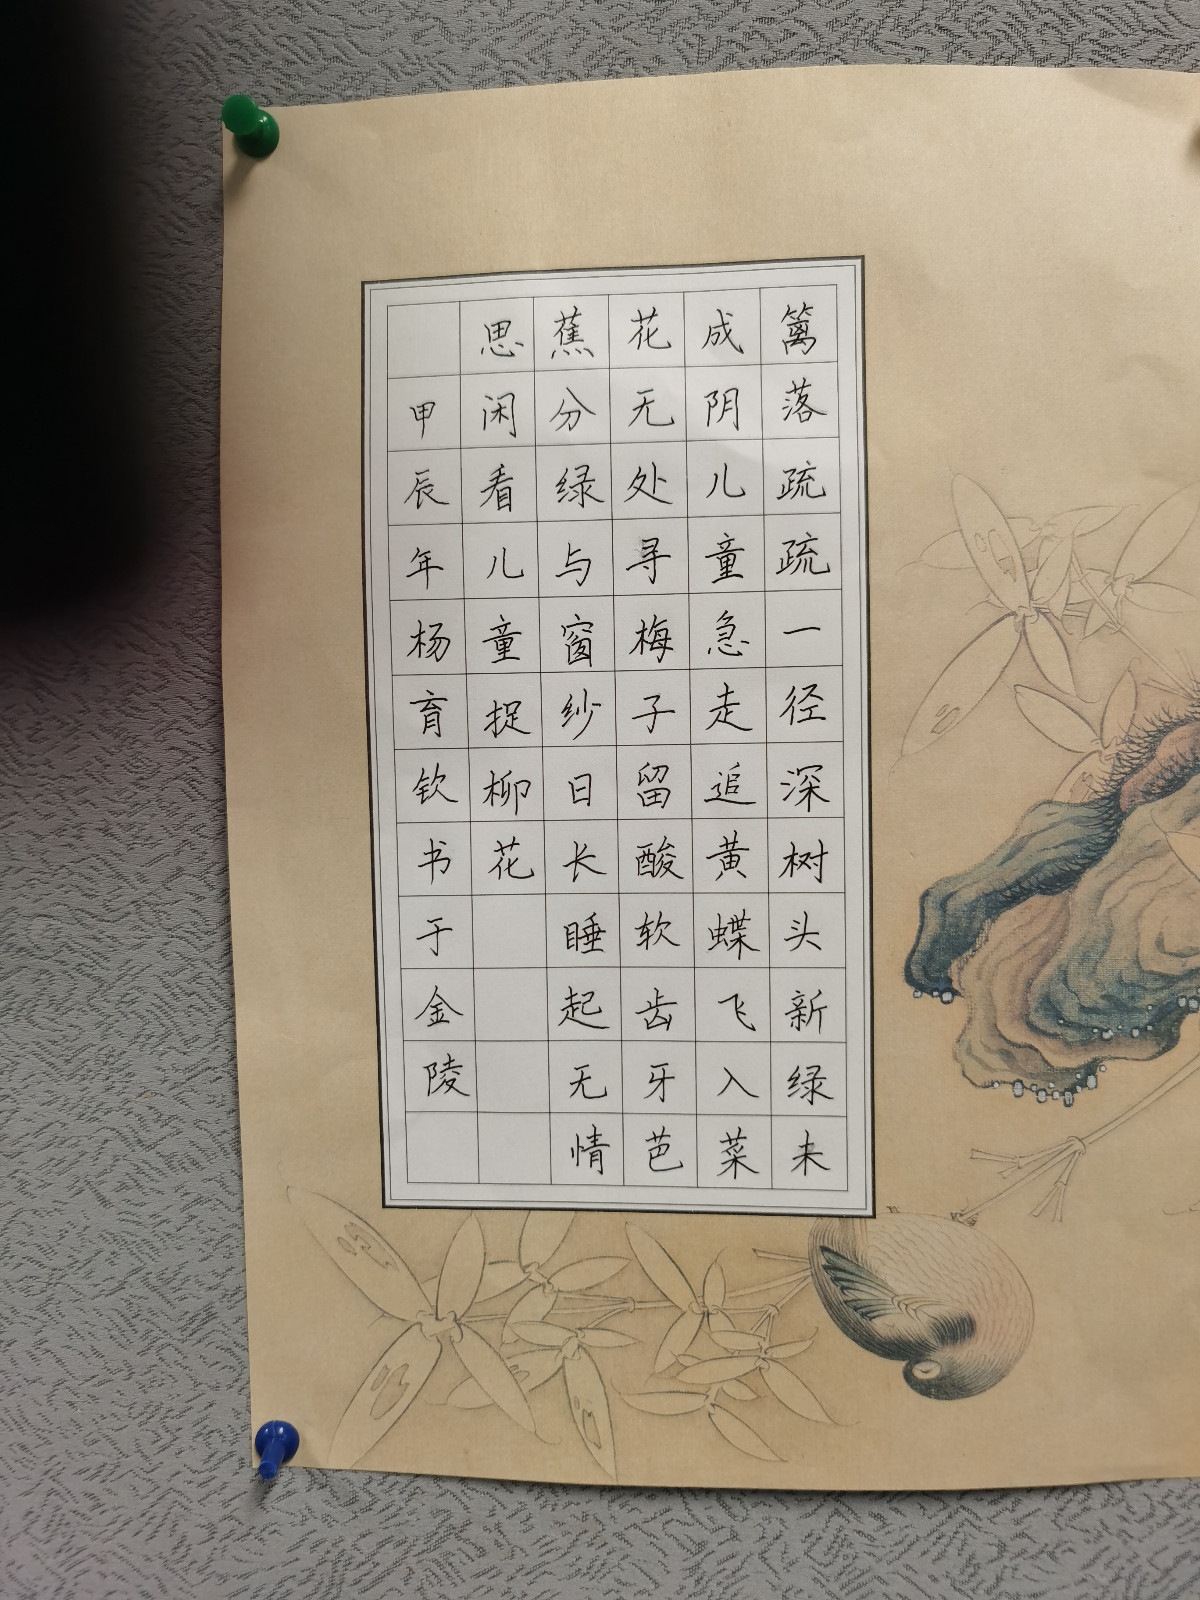 篱落疏疏一径深树头新绿未
成阴儿童急走追黄蝶飞入菜
花无处寻梅子留酸软齿牙芭
蕉分绿与窗纱日长睡起无情
思闲看儿童捉柳花
甲辰年杨育钦书于金陵